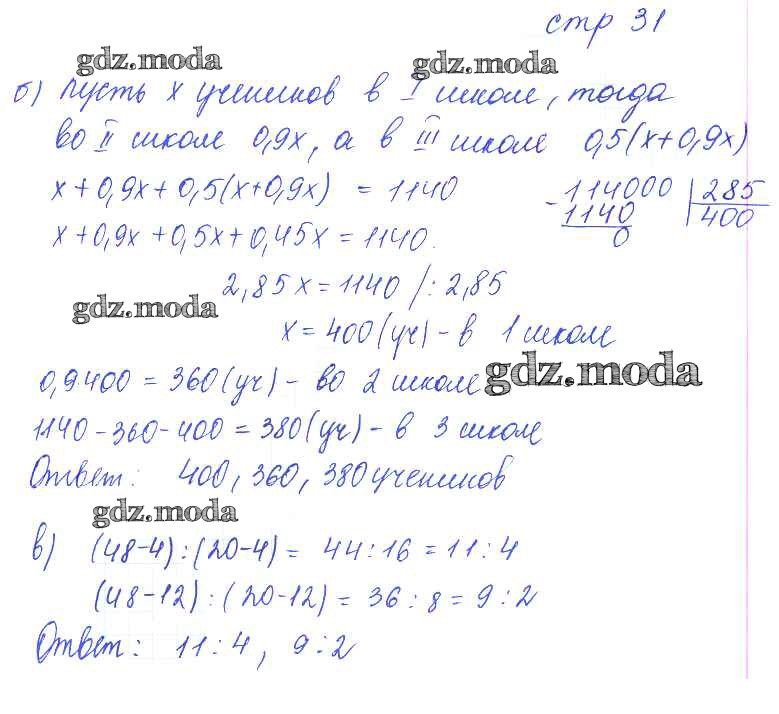 стр 31
gdz.moda
gdz.moda
б) пусть x учеников в I школе, тогда
во II школе 0,9x, а в III школе 0,5(x+0,9x)
x+0,9x+0,5(x+0,9x) = 1140
-114000 | 285
1140 400
0
x+0,9x+0,5x+0,45x=1140.
2,85x=1140 /:2,85
gdz.moda
x=400(уч)-в 1 школе
0,9400 = 360(уч)- во 2 школе
gdz.moda
1140-360-400=380(уч)-в 3 школе
Ответ: 400, 360, 380 учеников
gdz.moda
в) (48-4):(20-4)= 44:16=11:4
(48-12):(20-12)=36:8=9:2
Ответ: 11:4, 9:2